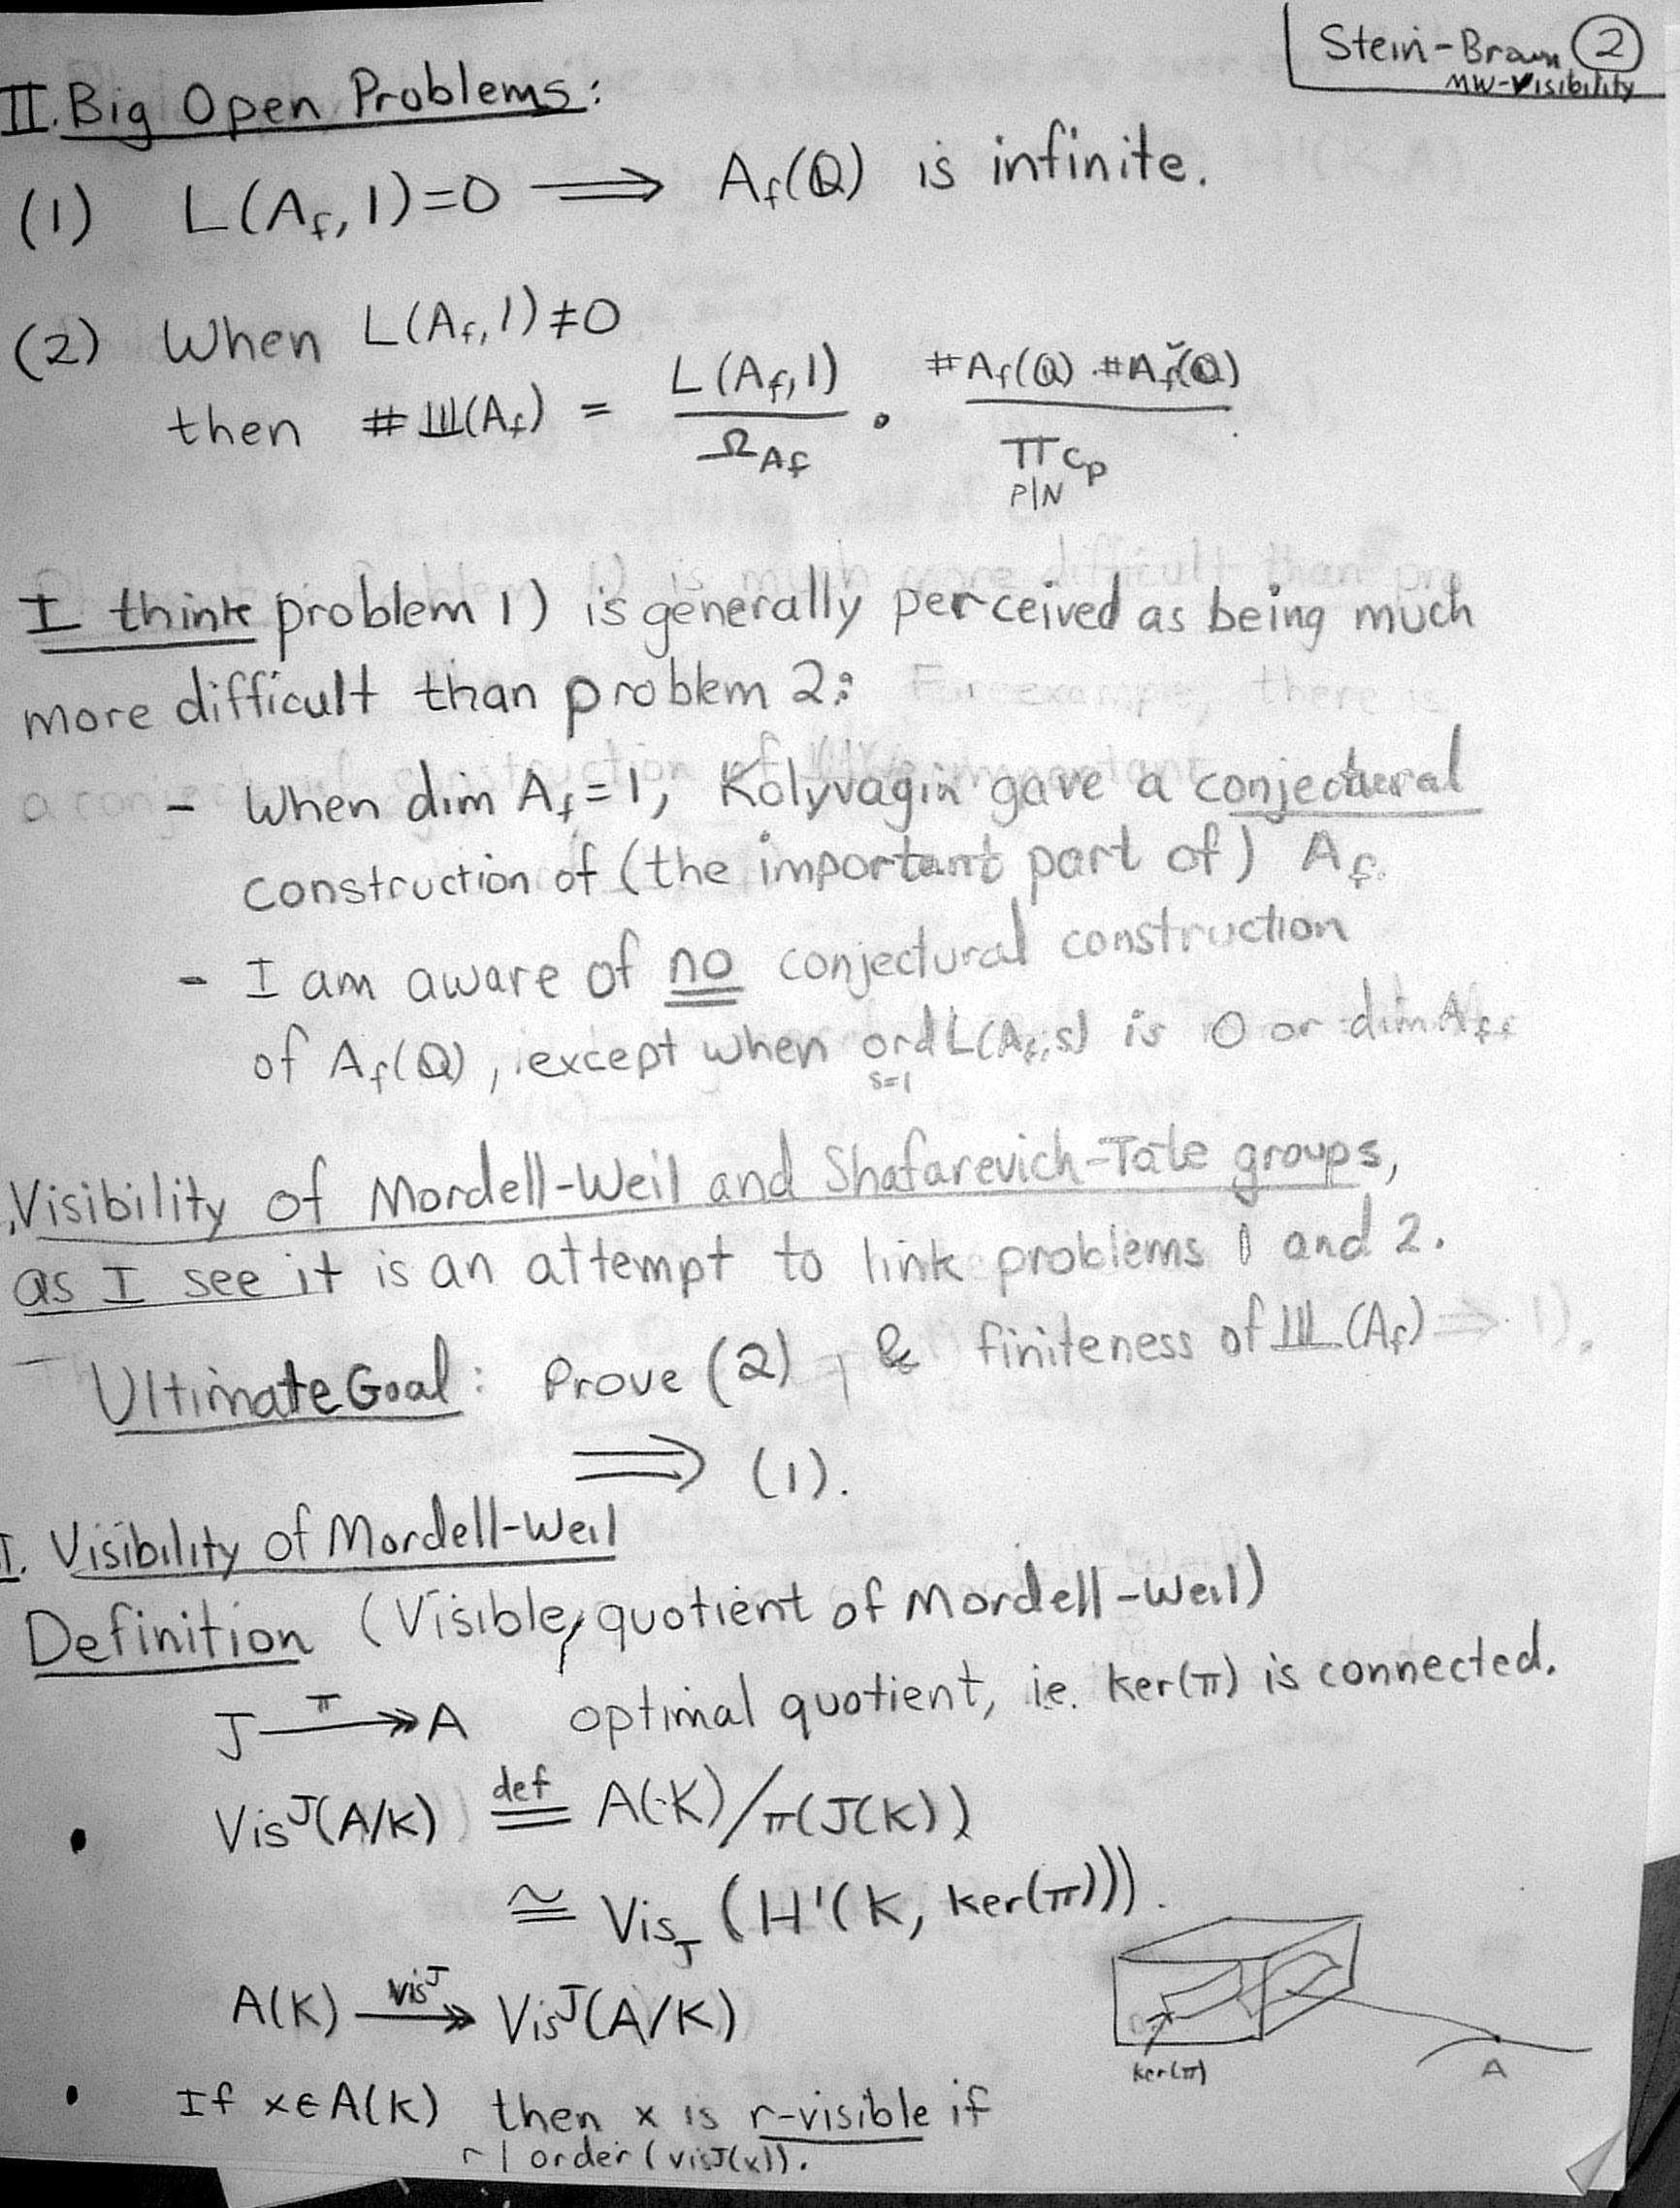 Stein-Brown 2
MW-Visibility
II. Big Open Problems:
(1) L(A_f, 1)=0 ⟹ A_f(Q) is infinite.
(2) When L(A_f, 1)≠0
then #Ш(A_f) = L(A_f, 1)/Ω_{A_f} · #A_f(Q) · #A_f^∨(Q) / ∏_{p|N} c_p
I think problem 1) is generally perceived as being much
more difficult than problem 2:
- When dim A_f = 1, Kolyvagin gave a conjectural
construction of (the important part of) A_f.
- I am aware of no conjectural construction
of A_f(Q), except when ord_{s=1} L(A_f, s) is 0 or dim A_f
Visibility of Mordell-Weil and Shafarevich-Tate groups,
as I see it is an attempt to link problems 1 and 2.
Ultimate Goal: Prove (2) & finiteness of Ш(A_f) ⟹ 1).
⟹ (1).
I. Visibility of Mordell-Weil
Definition (Visible quotient of Mordell-Weil)
J –π↠ A optimal quotient, ie. ker(π) is connected.
• Vis^J(A/K) =def A(K)/π(J(K))
≅ Vis_J (H¹(K, ker(π))).
A(K) –vis^J↠ Vis^J(A/K)
ker(π) A
• If x∈A(K) then x is r-visible if
r | order(vis^J(x)).